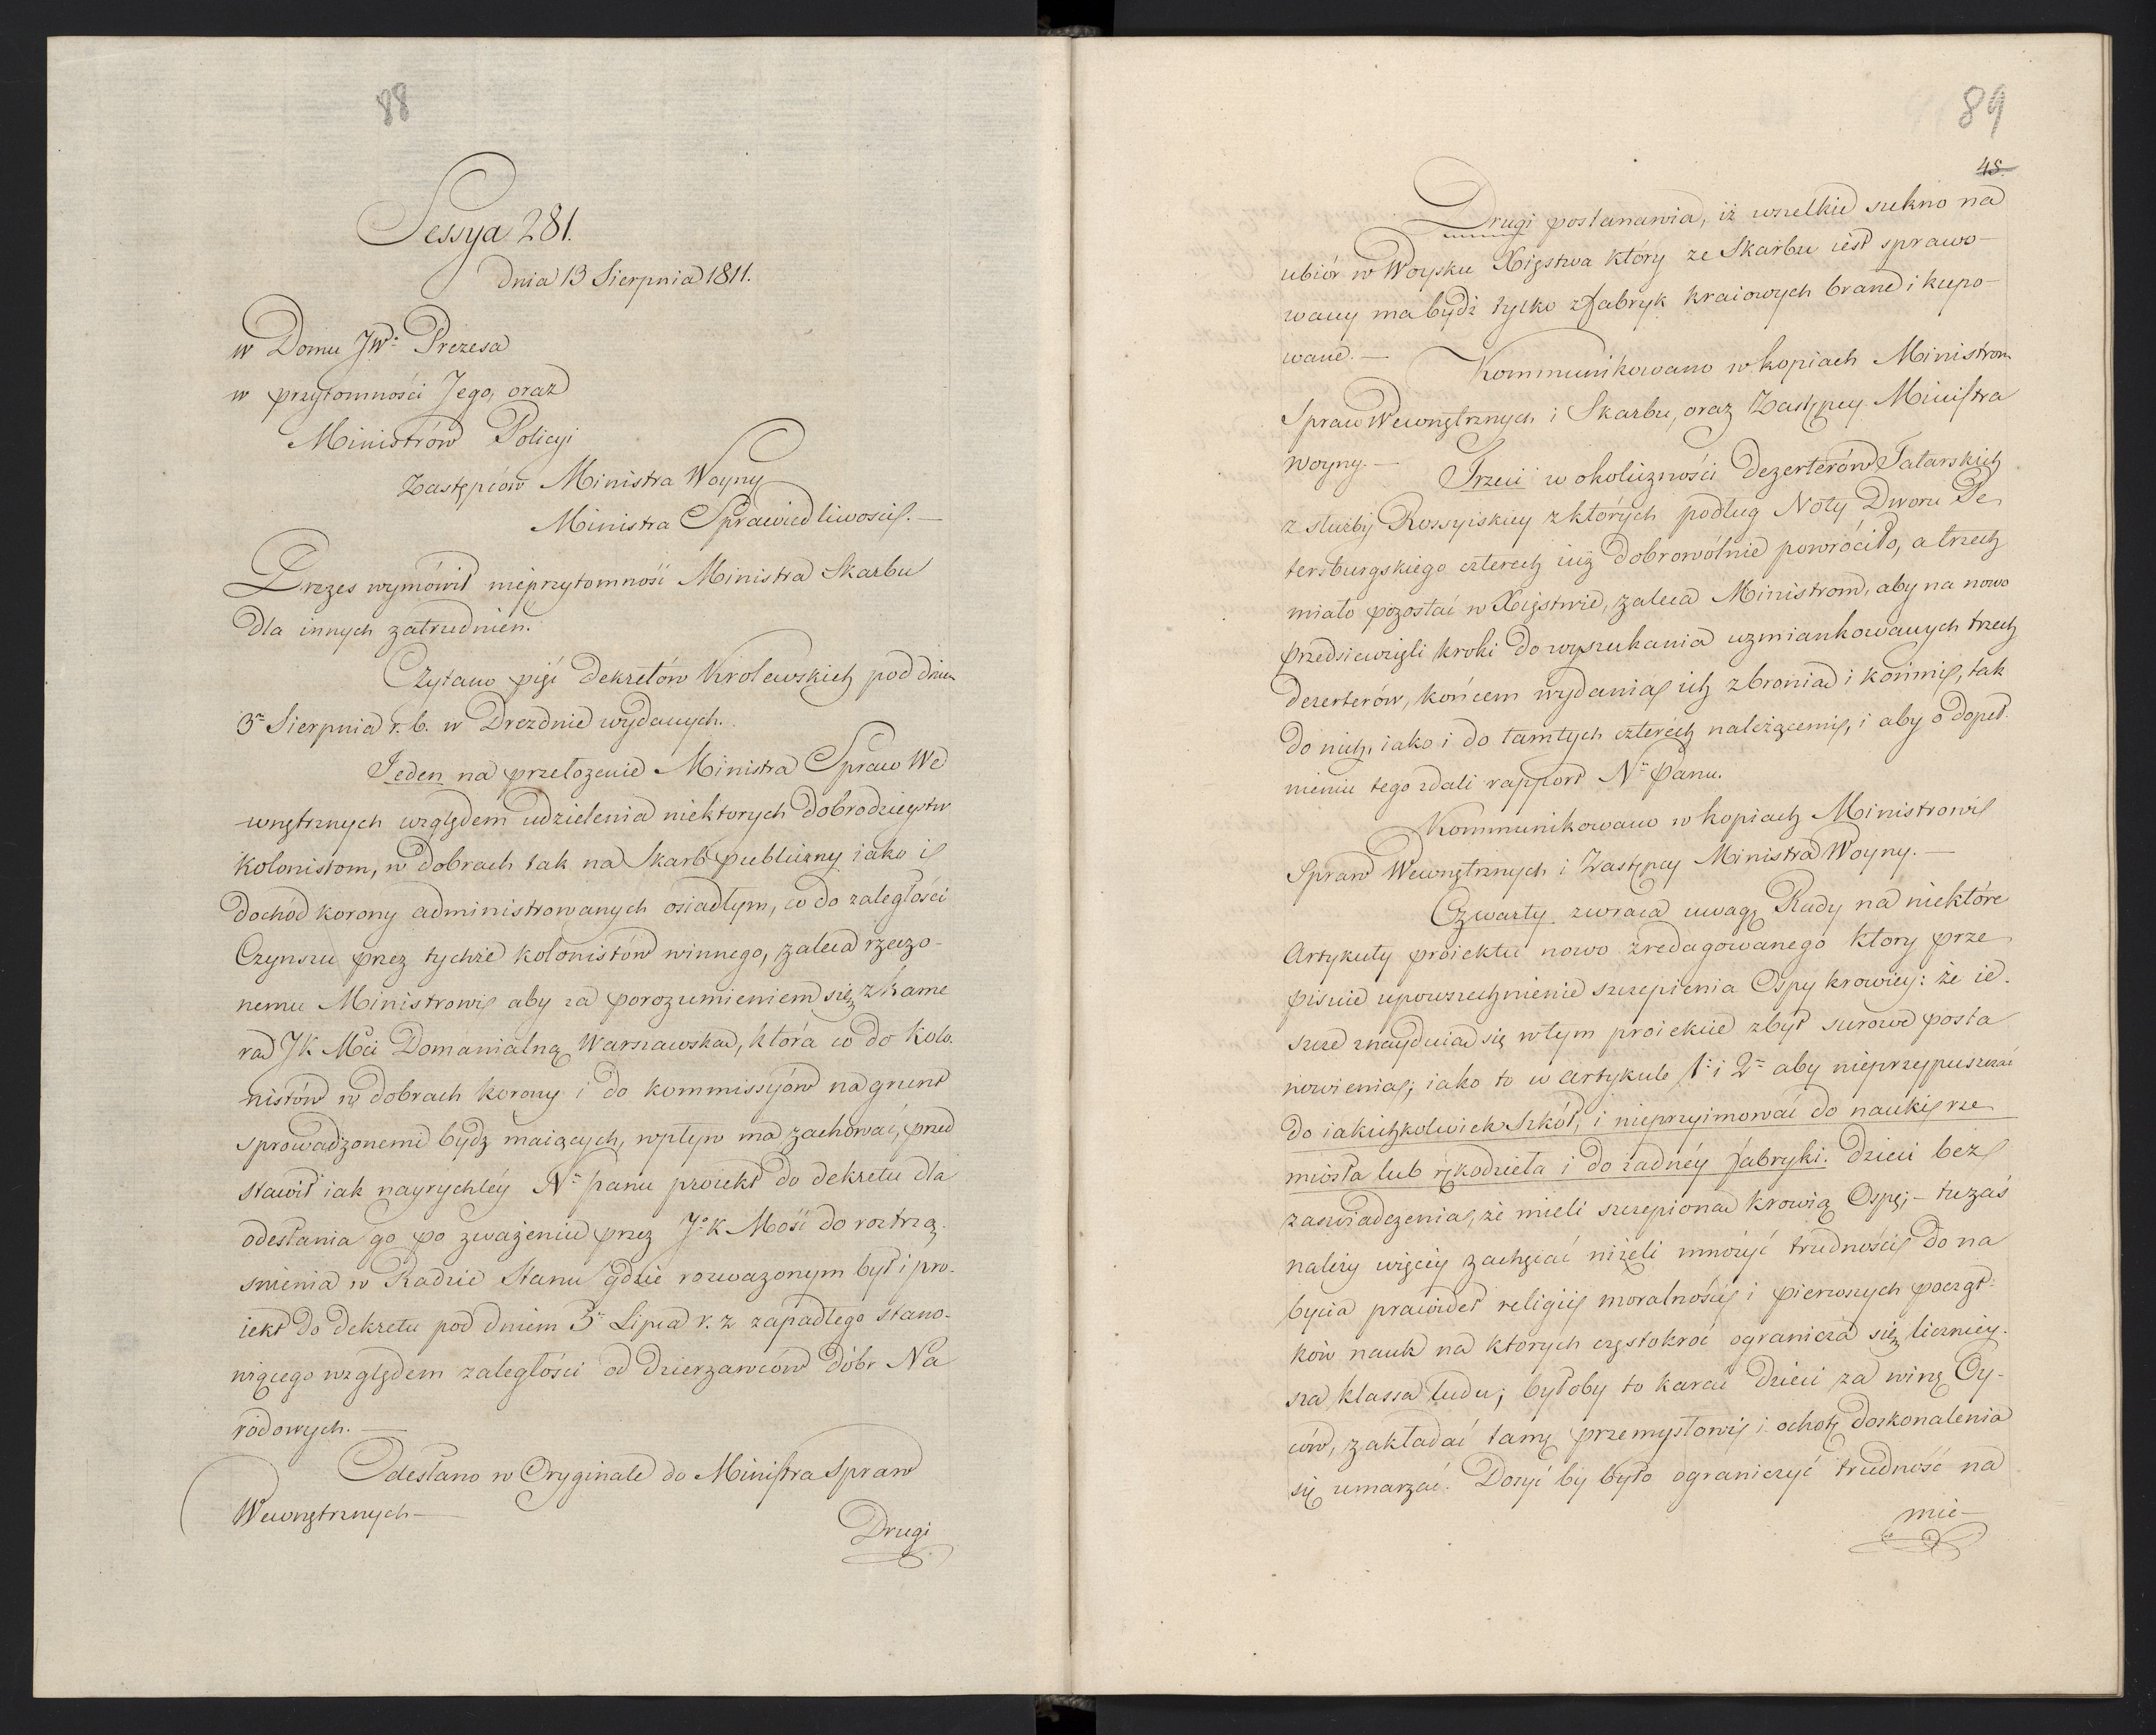 88
Sessya 281.
dnia 13 Sierpnia 1811.
w Domu JW: Prezesa
w przytomności Jego, oraz
Ministrów Policyi
Zastępców Ministra Woyny
Ministra Sprawiedliwości. —
Prezes wymówił nieprzytomność Ministra Skarbu
dla innych zatrudnień.
Czytano pięć Dekretów Krolewskich pod dniem
3m Sierpnia r. b. w Dreznie wydanych.
Jeden na przełożenie Ministra Spraw We
wnętrznych względem udzielenia niektorych dobrodzieystw
kolonistom, w dobrach tak na Skarb publiczny iako i
dochód korony administrowanych osiadłym, co do zaległości
Czynszu przez tychże kolonistów winnego, zaleca rzeczo-
nemu Ministrowi aby za porozumieniem się z Kame
rą JK Mci Domanialną Warszawską, która co do kolo-
nistów w dobrach korony i do kommissyiów na grunt
sprowadzonemi bydź maiących, wpływ ma zachować, przed
stawił iak nayrychléy N: panu proiekt do dekretu dla
odesłania go po zważeniu przez J: K Mość do roztrzą-
śnienia w Radzie Stanu gdzie rozważonym był i pro-
iekt do dekretu pod dniem 3: Lipca r. z zapadłego stano-
wiącego względem zaległości od dzierżawców dóbr Na
rodowych. —
Odesłano w Oryginale do Ministra Spraw
Wewnętrznych —
Drugi
89
45.
Drugi postanawia, iż wszelkie sukno na
ubiór w Woysku Xięstwa który ze Skarbu iest sprawo-
wany ma bydź tylko z fabryk kraiowych brane i kupo-
wane. —
Kommunikowano w kopiach Ministrom
Spraw Wewnętrznych i Skarbu, oraz Zastępcy Ministra
Woyny. —
Trzeci w okoliczności Dezerterów Tatarskich
z służby Rossyiskiey z których podług Noty Dworu Pe
tersburgskiego czterech iuż dobrowolnie powróciło, a trzech
miało pozostać w Xięstwie, zaleca Ministrom, aby na nowo
przedsiewzięli kroki do wyszukania wzmiankowanych trzech
dezerterów, końcem wydania ich z bronią i końmi, tak
do nich, iako i do tamtych czterech należącemi, i aby o dopeł-
nieniu tego zdali rapport N: Panu.
Kommunikowano w kopiach Ministrowi
Spraw Wewnętrznych i Zastępcy Ministra Woyny. —
Czwarty zwraca uwagę Rady na niektóre
Artykuły proiektu nowo zredagowanego ktory prze
pisuie upowszechnienie szczepienia Ospy krowiey: że ie-
szcze znayduią się w tym proiekcie zbyt surowe posta
nowienia; iako to w artykule 1: i 2: aby nieprzypuszczać
do iakichkolwiek Szkół, i nieprzyimować do nauki rze
miosła lub rękodzieła i do żadnéy fabryki. Dzieci bez
zaświadczenia, że mieli szczepioną krowią Ospę; — tu zaś
należy więcey zachęcać niżeli mnożyć trudności do na
bycia prawideł religii moralności i pierwszych począt-
ków nauk na ktorych częstokroć ogranicza się liczniey-
sza klassa ludu; byłoby to karać dzieci za winę Oy-
ców, zakładać tamę przemysłowi i ochotę doskonalenia
się umarzać. Dosyć by było ograniczyć trudność na
mie—